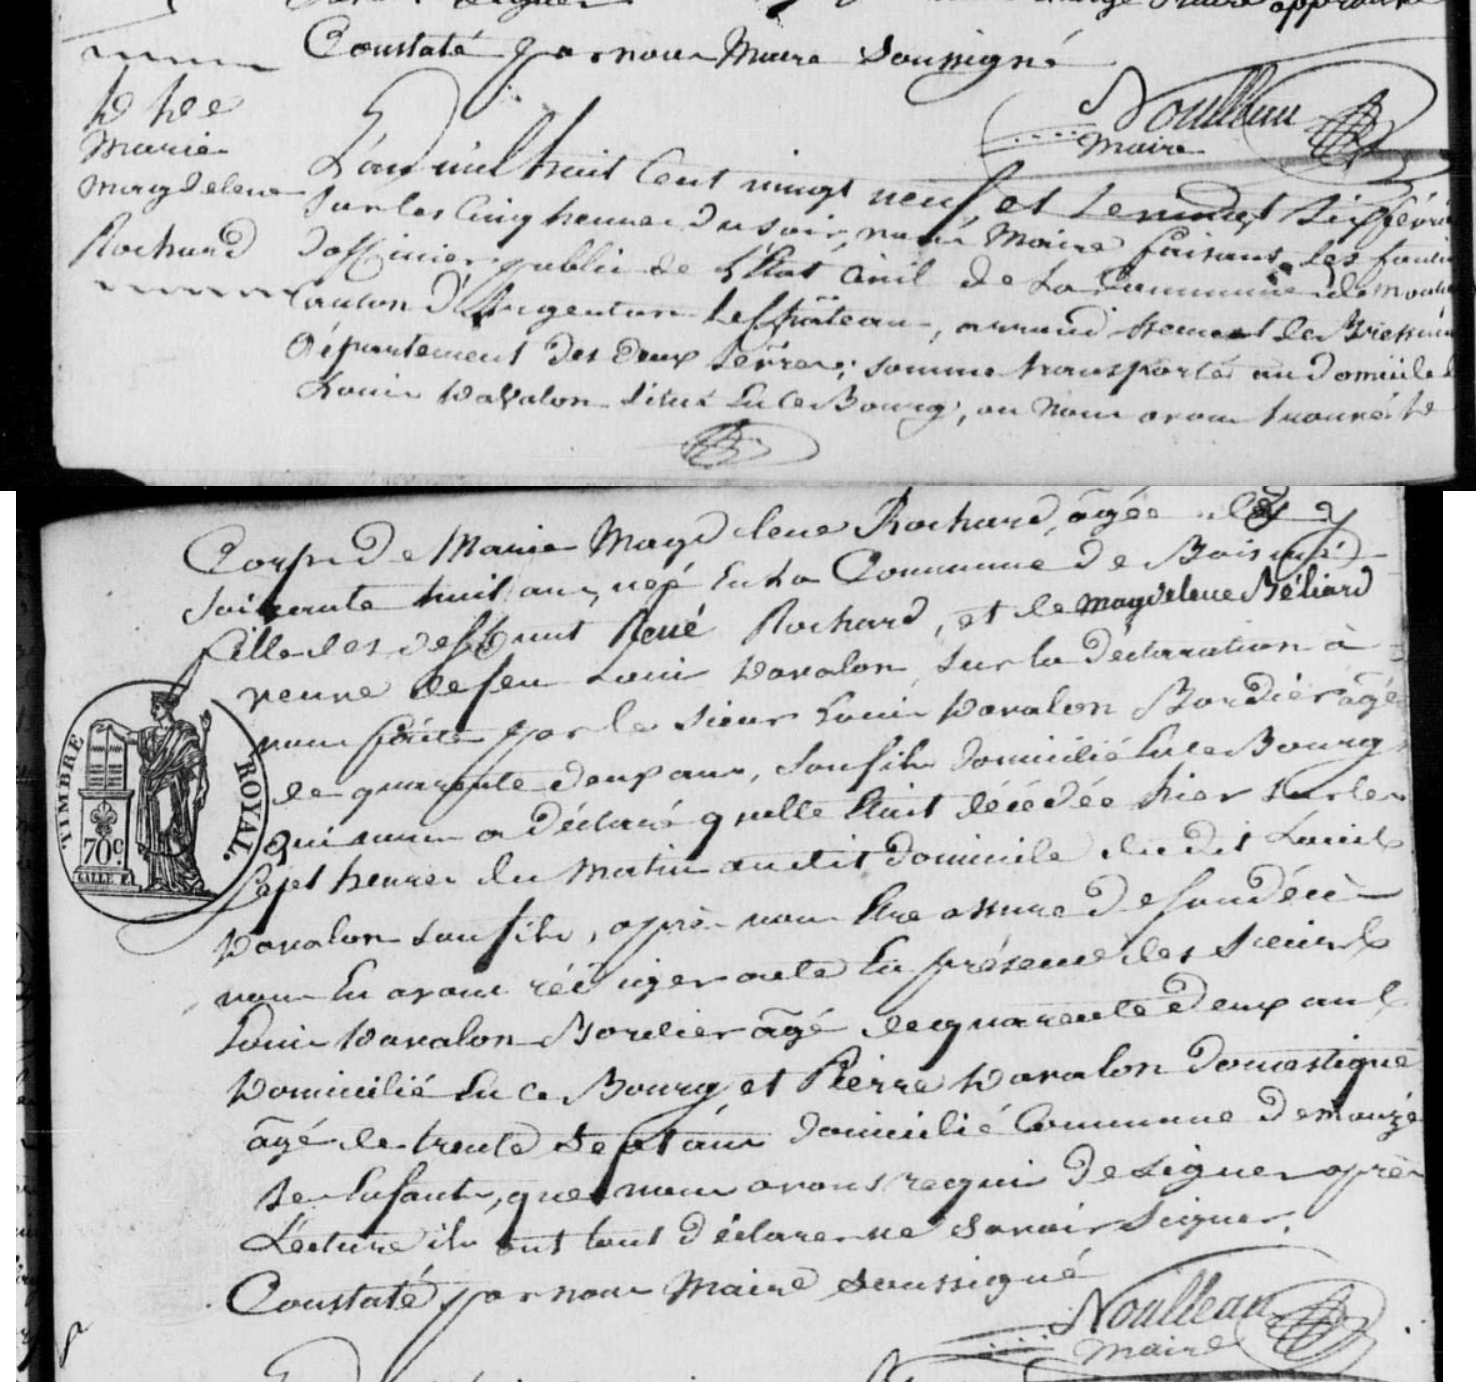 Constaté par nous Maire Soussigné
Noulleau
Maire
D de
Marie
Magdelene
Rochard
L'an mil huit Cent vingt neuf, et le vingt six fevri
Sur les Cinq heures du soir, nous Maire faisant les foncti
D'officier public de L'Etat Civil de La Commune de
Canton D'Argenton Le Château, arrondissement de Bressui
Département des Deux Sèvres; somme transporté au domicile
Louis Davalon situé en ce Bourg, ou nous avons trouvé le
Corps de Marie Magdelene Rochard, âgée de
Soixante huit ans, née En La Commune de Boismé
fille des deffunt René Rochard, et de Magdelene Béliard
veuve de feu Louis Davalon, sur la Déclaration à
nous faite par le sieur Louis Davalon Bordier âgé
de quarente deux ans, son fils domicilié en ce Bourg
qui nous a déclaré quelle était décédée hier sur les
sept heures du Matin au dit domicile du dit Louis
Davalon son fils, après nous être assuré de son décès
nous En avons rédiger acte En présence des sieurs
Louis Davalon Bordier âgé de quarente deux ans
Domicilié En ce Bourg et Pierre Davalon Domestique
âgé de trente sept ans domicilié Commune De mouzé
ses Enfants, que nous avons requis De signer après
Lecture ils ont tout déclare ne savoir signer.
Constaté par nous Maire Soussigné
Noulleau
Maire
TIMBRE ROYAL.
70c